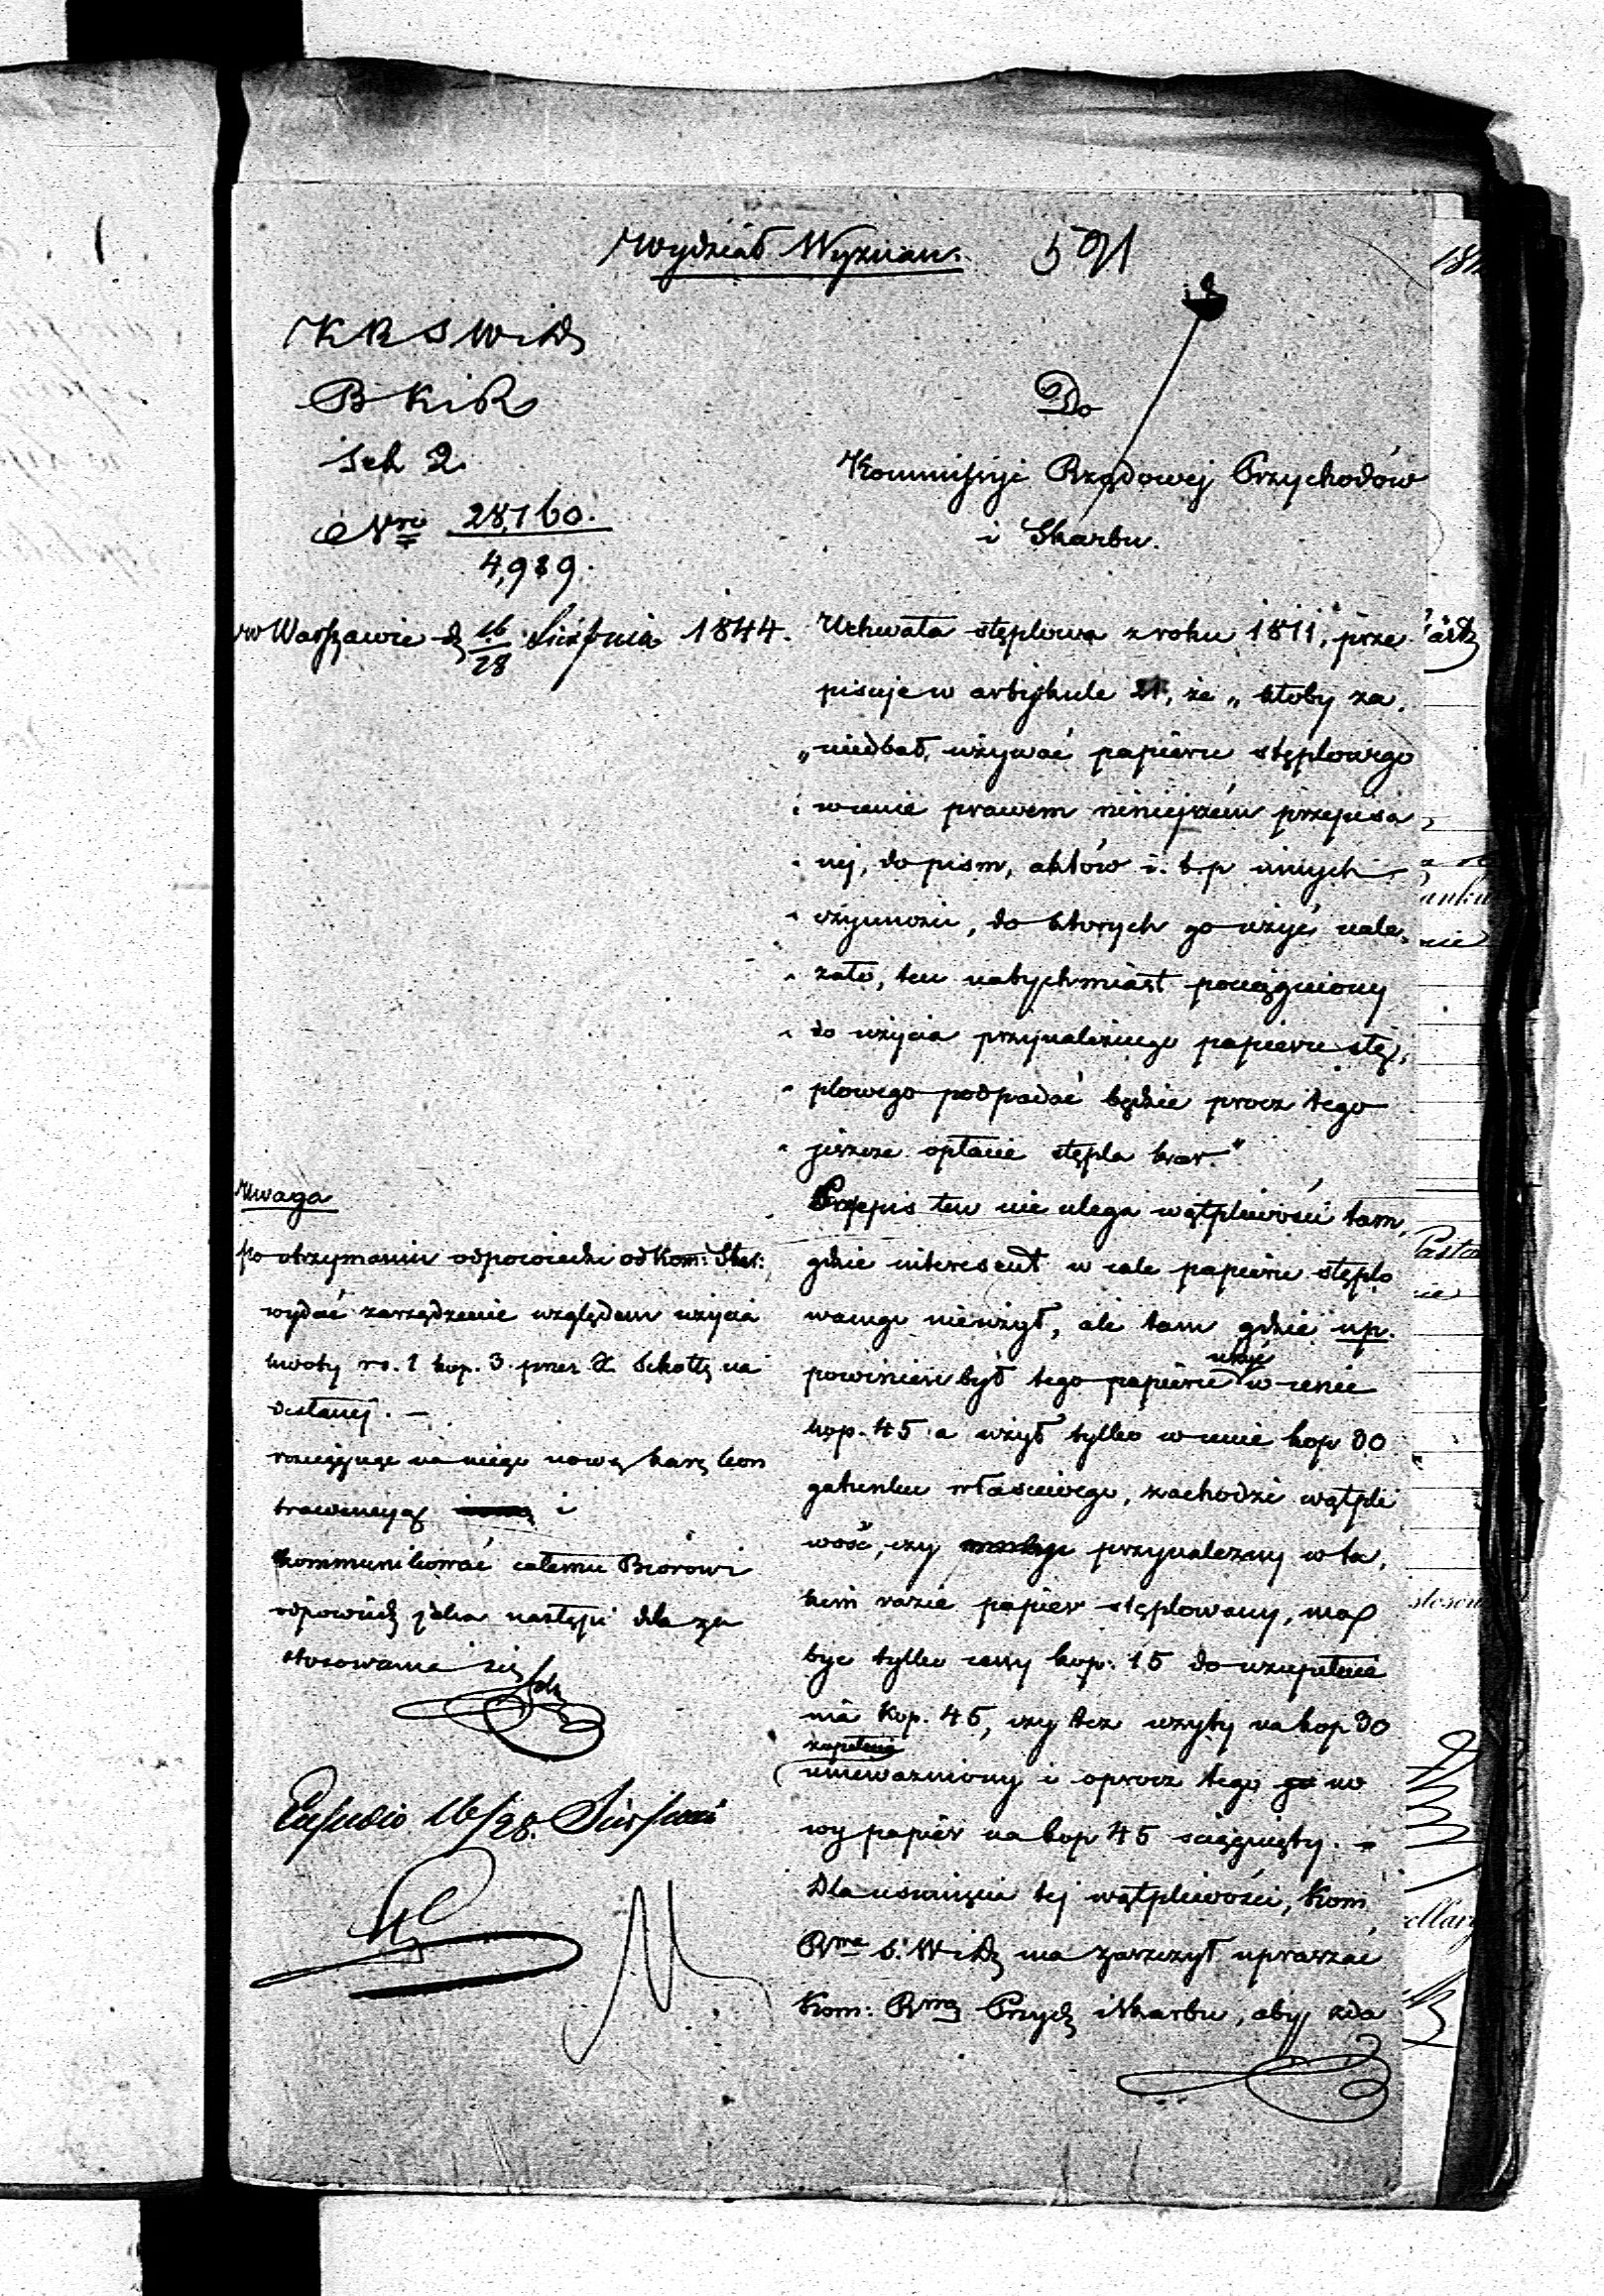 Wydział Wyznań. 591
K R S W i D
B K i R
Sek 2.
Nro 28,160.
4,989.
w Warszawie d 16/28 Sierpnia 1844.
Do
Kommissyi Rządowej Przychodów
i Skarbu.
Uchwała stęplowa z roku 1811, prze
pisuje w artykule 21, że „ktoby za„
„niedbał, używać papieru stęplowego
„ w cenie prawem niniejszém przepisa„
„ nej, do pism, aktów i. t. p innych
„ czynności, do ktorych go użyć nale„
„ żało, ten natychmiast pociągniony
„ do użycia przynależnego papieru stę„
„ plowego podpadać będzie procz tego
„ jeszcze opłacie stępla kar."
Przepis ten nie ulega wątpliwości tam,
gdzie interesent w cale papieru stęplo
wanego nieużył, ale tam gdzie np.
powinien był tego papieru użyć w cenie
kop. 45 a użył tylko w cenie kop 30
gatunku właściwego, zachodzi wątpli
wość, czy przynależny w ta„
kim razie papier stęplowany, ma
być tylko ceny kop: 15 do uzupełnie
nia kop. 45, czy też użyty na kop 30
zupełnie
unieważniony i oprocz tego no
wy papier na kop 45 ściągnięty. –
Dla usunięcia tej wątpliwości, Kom
Rwa S. W i D ma zaszczyt upraszać
Kom: Rwą Przych i Skarbu, aby zda
Uwaga
po otrzymaniu odpowiedzi od Kom: Skar:
wydać zarządzenie względem użycia
kwoty rs. 1 kop. 3 przez na
desłanej. –
rozciągając na niego nową karę kon
trawencyą i
kommunikować całemu Biórowi
odpowiedź jaka nastąpi dla za
stosowania się
16/28 Sierpnia